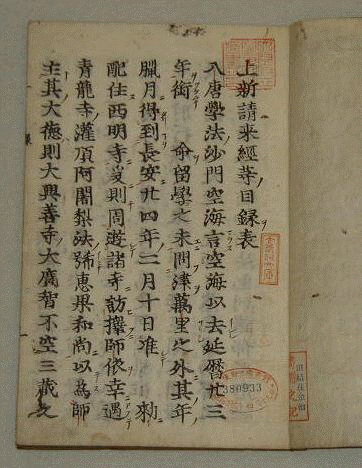 上新請来經等目録表
入唐學法沙門空海言空海以去延暦廿三
年銜　命留學之末問津萬里之外其年
臘月得到長安廿四年二月十日准　勅
配住西明寺爰則周遊諸寺訪擇師依幸遇
青龍寺灌頂阿闍梨法号恵果和尚以為師
主其大徳則大興善寺大廣智不空三蔵之
380933